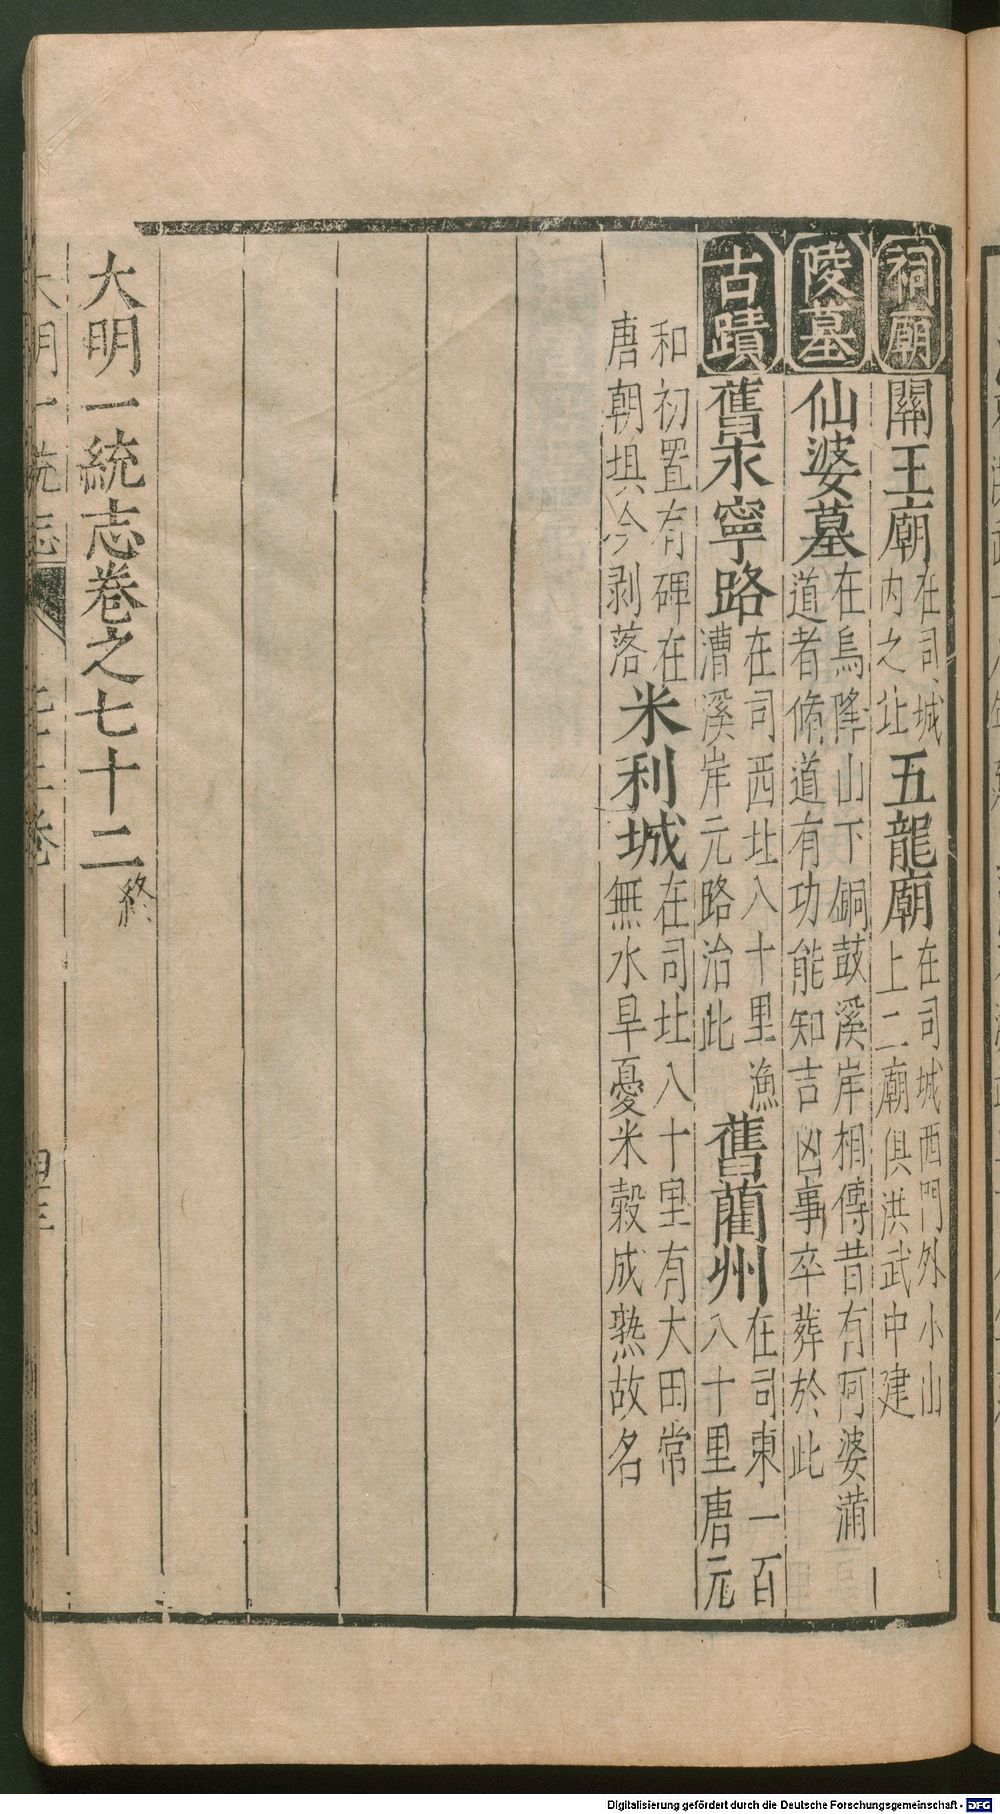 祠廟 關王廟 在司城内之北 五龍廟 在司城西門外小山上二廟俱洪武中建
陵墓 仙婆墓 在烏降山下銅鼓溪岸相傳昔有阿婆蒲道者脩道有功能知吉凶事卒葬於此
古蹟 舊永寧路 在司西北八十里漁漕溪岸元路治此 舊藺州 在司東一百八十里唐元
和初置有碑在唐朝垻今剥落 米利城 在司北八十里有大田常無水旱憂米穀成熟故名
大明一統志卷之七十二 終
大明一統志
Digitalisierung gefördert durch die Deutsche Forschungsgemeinschaft - DFG